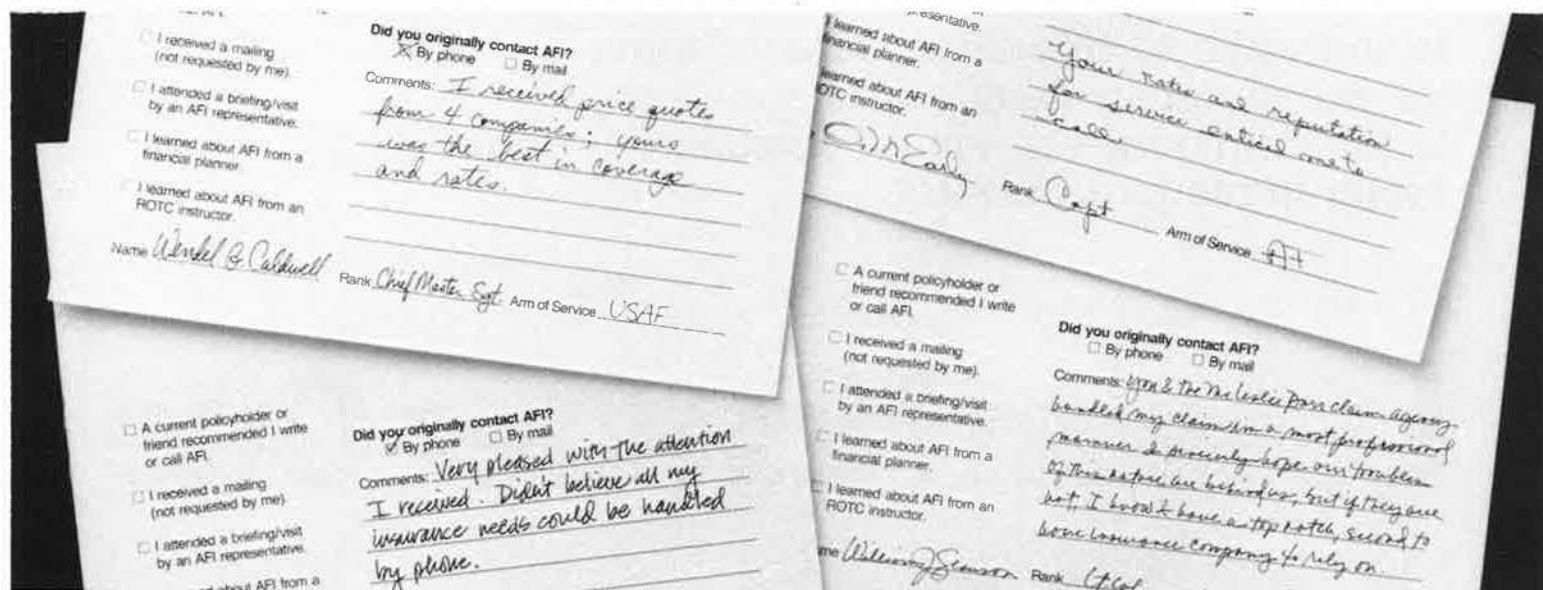 I received a mailing
(not requested by me).
I attended a briefing/visit
by an AFI representative.
I learned about AFI from a
financial planner.
I learned about AFI from an
ROTC instructor.
Did you originally contact AFI?
By phone By mail
Comments: I received price quotes
from 4 companies; yours
was the best in coverage
and rates.
Name Wendel G. Caldwell Rank Chief Master Sgt Arm of Service USAF
learned about AFI from a
financial planner.
learned about AFI from an
ROTC instructor.
Your rates and reputation
for service enticed me to
call.
Early Rank Capt Arm of Service
A current policyholder or
friend recommended I write
or call AFI.
I received a mailing
(not requested by me).
I attended a briefing/visit
by an AFI representative.
about AFI from a
Did you originally contact AFI?
By phone By mail
Comments: Very pleased with the attention
I received. Didn't believe all my
insurance needs could be handled
by phone.
A current policyholder or
friend recommended I write
or call AFI.
I received a mailing
(not requested by me).
I attended a briefing/visit
by an AFI representative.
I learned about AFI from a
financial planner.
I learned about AFI from an
ROTC instructor.
Did you originally contact AFI?
By phone By mail
Comments: You & the claim agency
handled my claim in a most professional
manner. I sincerely hope our problems
of this nature are behind us, but if they are
not, I know I have a top notch, second to
none insurance company to rely on
William J Rank Lt Col